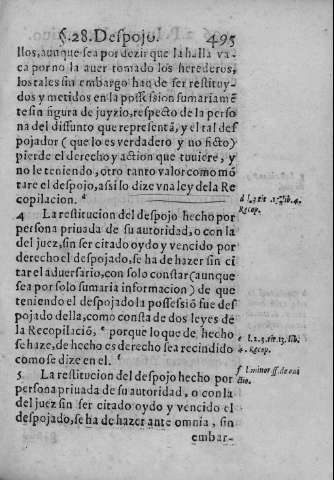 §.28. Despojo. 495
llos, aunque sea por dezir que la halla va-
ca por no la auer tomado los herederos,
los tales sin embargo han de ser restituy-
dos y metidos en la possession sumariamẽ
te sin figura de juyzio, respecto de la perso
na del diffunto que representã, y el tal des
pojador ( que lo es verdadero y no ficto)
pierde el derecho y action que tuuiere, y
no le teniendo, otro tanto valor como mõ
tare el despojo, assi lo dize vna ley de la Re
copilacion. d
d l. tit. lib. 4.
Recop.
4 La restitucion del despojo hecho por
persona priuada de su autoridad, o con la
del juez, sin ser citado oydo y vencido por
derecho el despojado, se ha de hazer sin ci
tar el aduersario, con solo constar (aunque
sea por solo sumaria informacion) de que
teniendo el despojado la possessiõ fue des
pojado della, como consta de dos leyes de
la Recopilaciõ, e porque lo que de hecho
se haze, de hecho es derecho sea recindido
como se dize en el. f
e l. 2. 5. tit. 13. lib.
4. Recop.
f l. minor ff. de
5 La restitucion del despojo hecho por
persona priuada de su autoridad, o con la
del juez sin ser citado oydo y vencido el
despojado, se ha de hazer ante omnia, sin
embar-